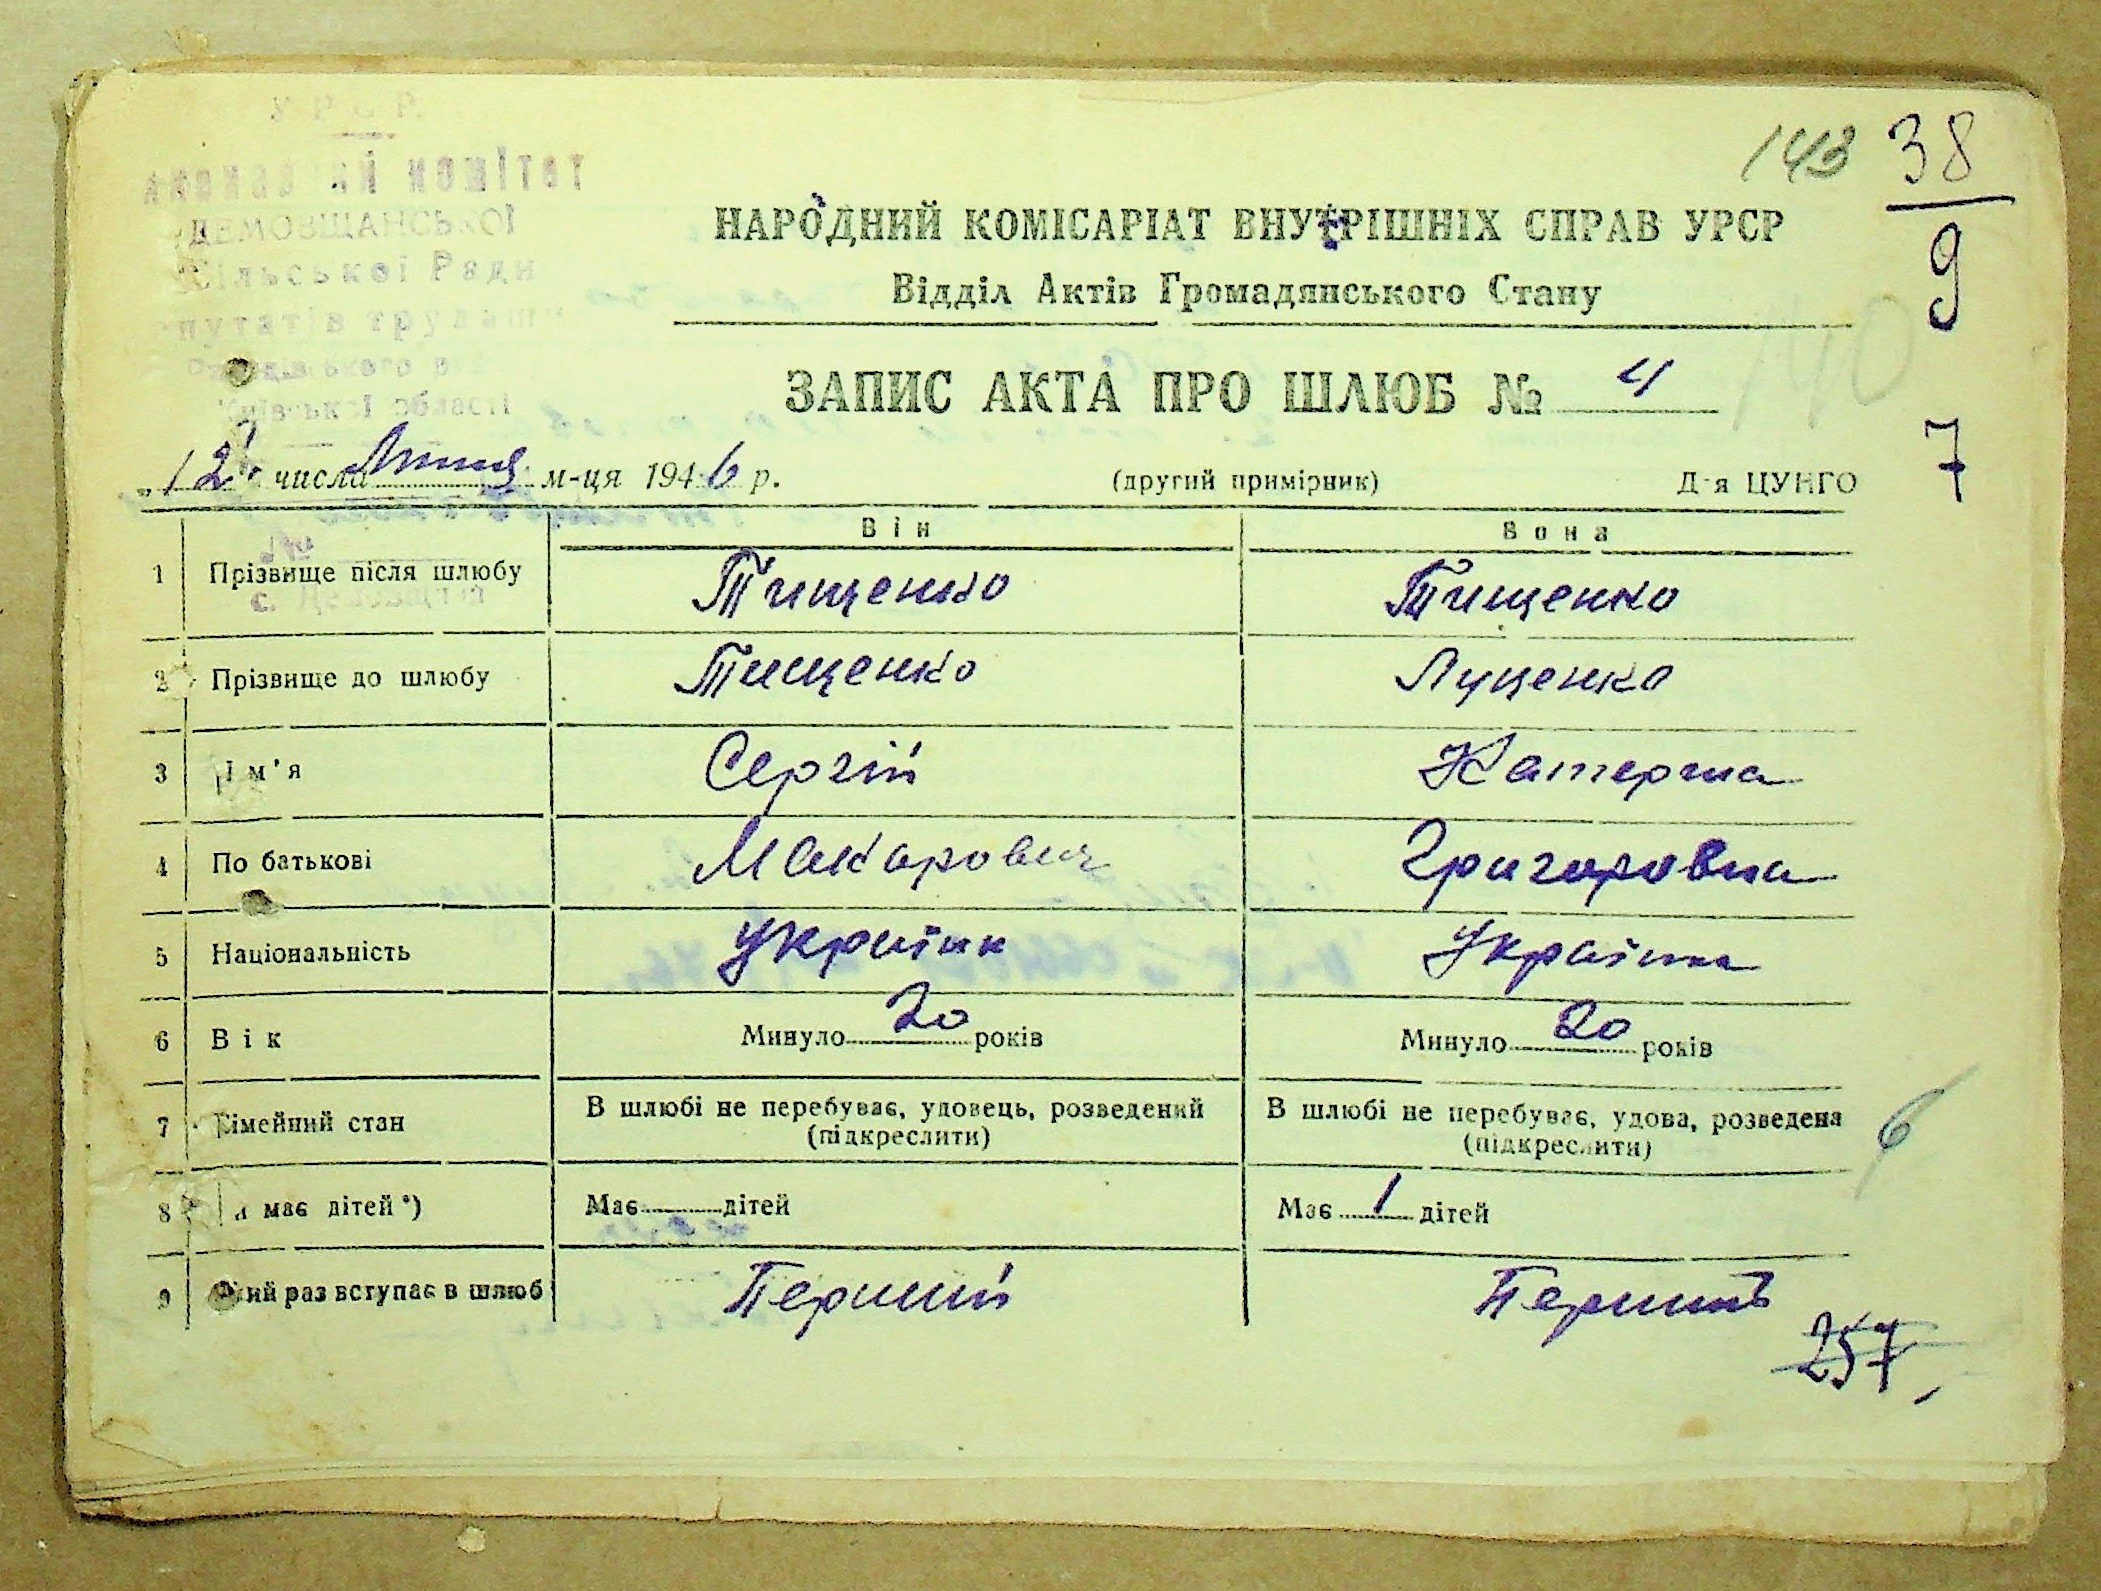 УРСР
ДЕМОВЩАНСЬКОЇ
Сільської Ради
Київської області
143 38
9
7
НАРОДНИЙ КОМІСАРІАТ ВНУТРІШНІХ СПРАВ УРСР
Відділ Актів Громадянського Стану
ЗАПИС АКТА ПРО ШЛЮБ № 4
140
„12" числа Липня м-ця 1946 р. (другий примірник) Д-я ЦУНГО
Він Вона
1 Прізвище після шлюбу Тищенко Тищенко
2 Прізвище до шлюбу Тищенко Луценко
3 Ім'я Сергій Катерина
4 По батькові Макарович Григоровна
5 Національність Українк Українка
6 Вік Минуло 20 років Минуло 20 років
7 Сімейний стан В шлюбі не перебуває, удовець, розведений (підкреслити) В шлюбі не перебуває, удова, розведена (підкреслити)
6
8 має дітей*) Має дітей Має 1 дітей
9 Який раз вступає в шлюб Перший Перший
257